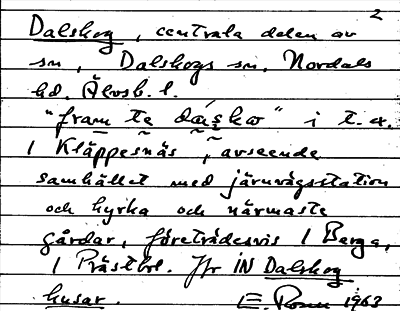 2
Dalskog, centrala delen av
sn, Dalskogs sn, Nordals
hd. Älvsb. l.
"fram te dáskω" i t. ex.
i Kläppesnäs, avseende
samhället med järnvägsstation
och kyrka och närmaste
gårdar, företrädesvis i Berga,
i Prästbol. Jfr IN Dalskog
husar. E. Rosen 1963